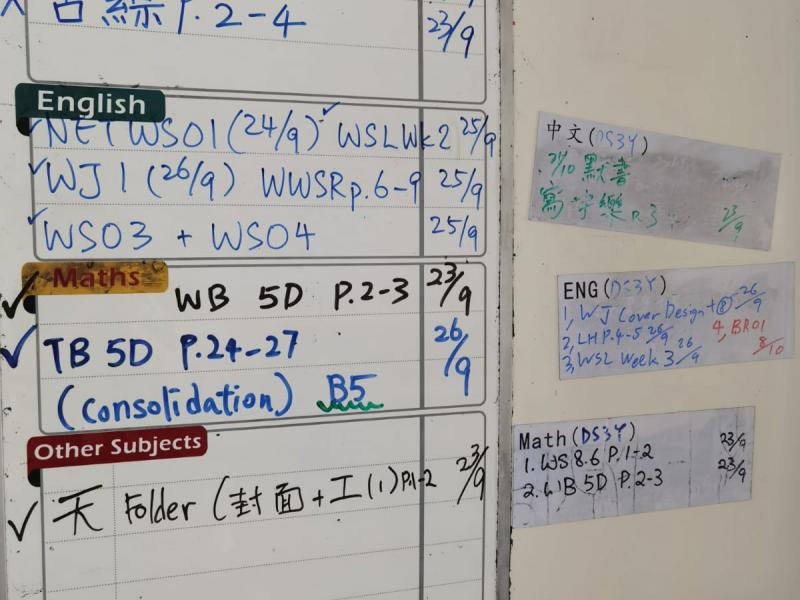 P.2-4 23/9
English
NET WS01 (24/9) WSL Wk2 25/9
WJ 1 (26/9) WWSR p.6-9 25/9
WS03 + WS04 25/9
Maths
WB 5D P.2-3 23/9
TB 5D P.24-27 26/9
(Consolidation) B5
Other Subjects
Folder (封面 + 工(1) P.1-2 23/9
中文 (DS3Y)
默書
寫 P.3 23/9
ENG (DS3Y)
1, WJ Cover Design + ② 26/9
2, LH P.4-5 26/9 4, BR01
3, WSL Week 3 26/9 8/10
Math (DS3Y)
1. WS 8.6 P.1-2 23/9
2. WB 5D P.2-3 23/9